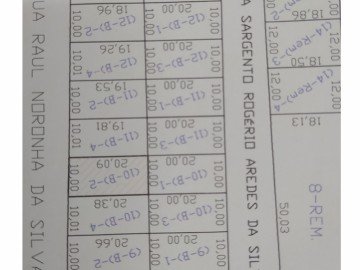 UA RAUL NORONHA DA SILVA
18,96
(12-B)-2
10,00
10,01
19,26
(12-B)-4
10,00
10,01
19,53
(11-B)-2
10,00
10,01
19,81
(11-B)-4
10,00
10,01
20,09
(10-B)-2
10,00
10,01
20,38
(10-B)-4
10,00
10,01
20,66
(9-B)-2
20,00
(12-B)-1
10,00
10,00
20,00
(12-B)-3
10,00
10,00
20,00
(11-B)-1
10,00
10,00
20,00
(11-B)-3
10,00
10,00
20,00
(10-B)-1
10,00
10,00
20,00
(10-B)-3
10,00
10,00
20,00
(9-B)-1
A SARGENTO ROGÉRIO AREDES DA SIL
12,00
18,86
(14-Rem)-3
12,00
12,00
18,50
(14-Rem)-4
12,00
18,13
8-REM.
50,03